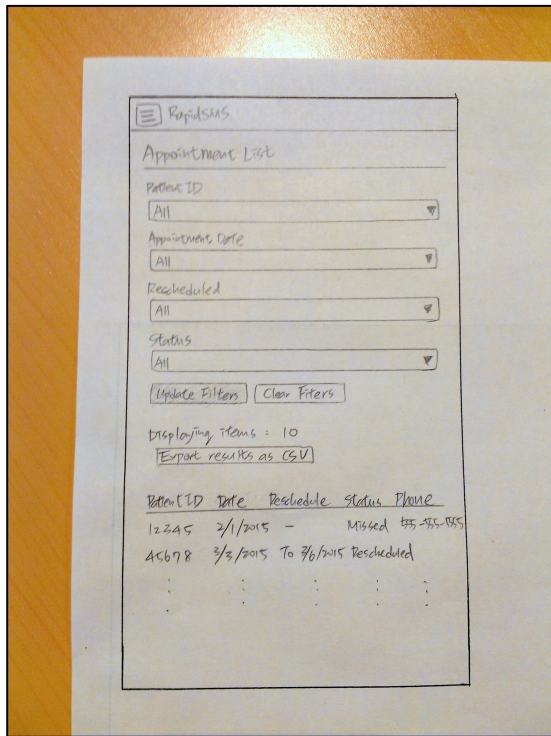 RapidSMS
Appointment List
Patient ID
All
Appointment Date
All
Rescheduled
All
Status
All
Update Filters Clear Fiters
Displaying items : 10
Export results as CSV
Patient ID Date Reschedule Status Phone
12345 2/1/2015 - Missed 555-555-5555
45678 3/3/2015 To 3/6/2015 Rescheduled